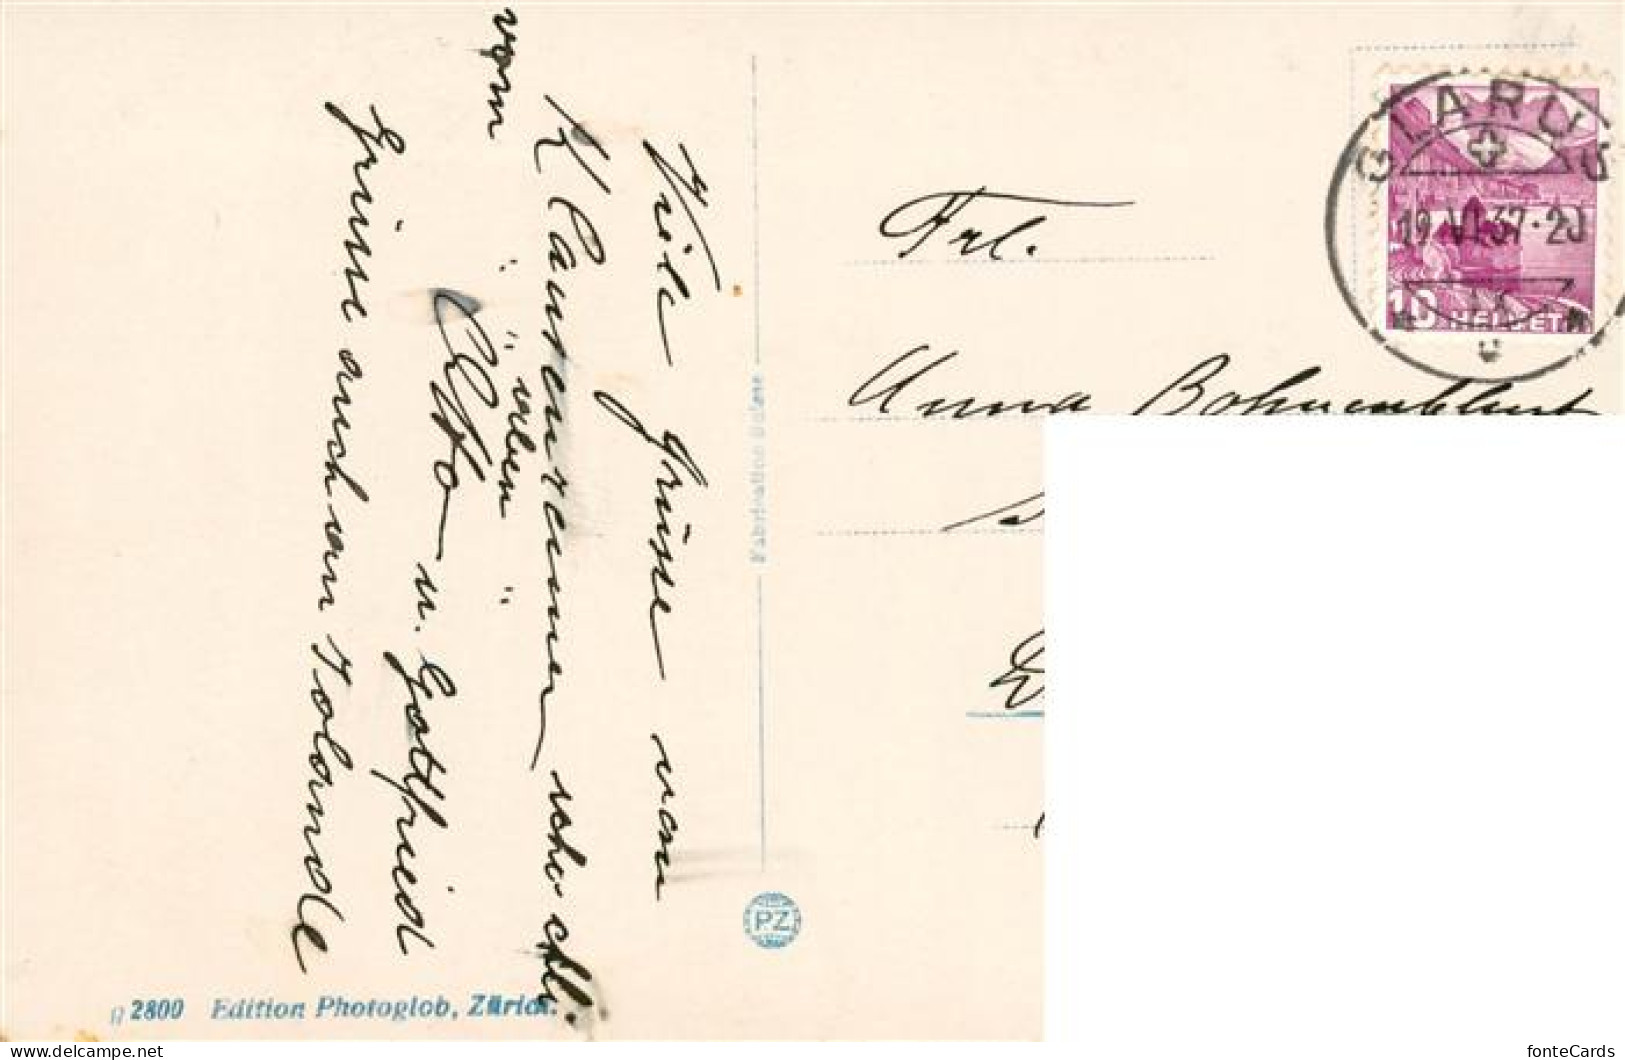 Viele Grüsse vom
Klausenrennen
vom " " "
Otto u. Gottfried
Grüsse auch von Jolande
Frl.
Anna Bohnenblust
GLARUS
19.VI.37·20
10 HELVETIA
Fabrication Suisse
PZ
2800 Edition Photoglob, Zürich.
fonteCards